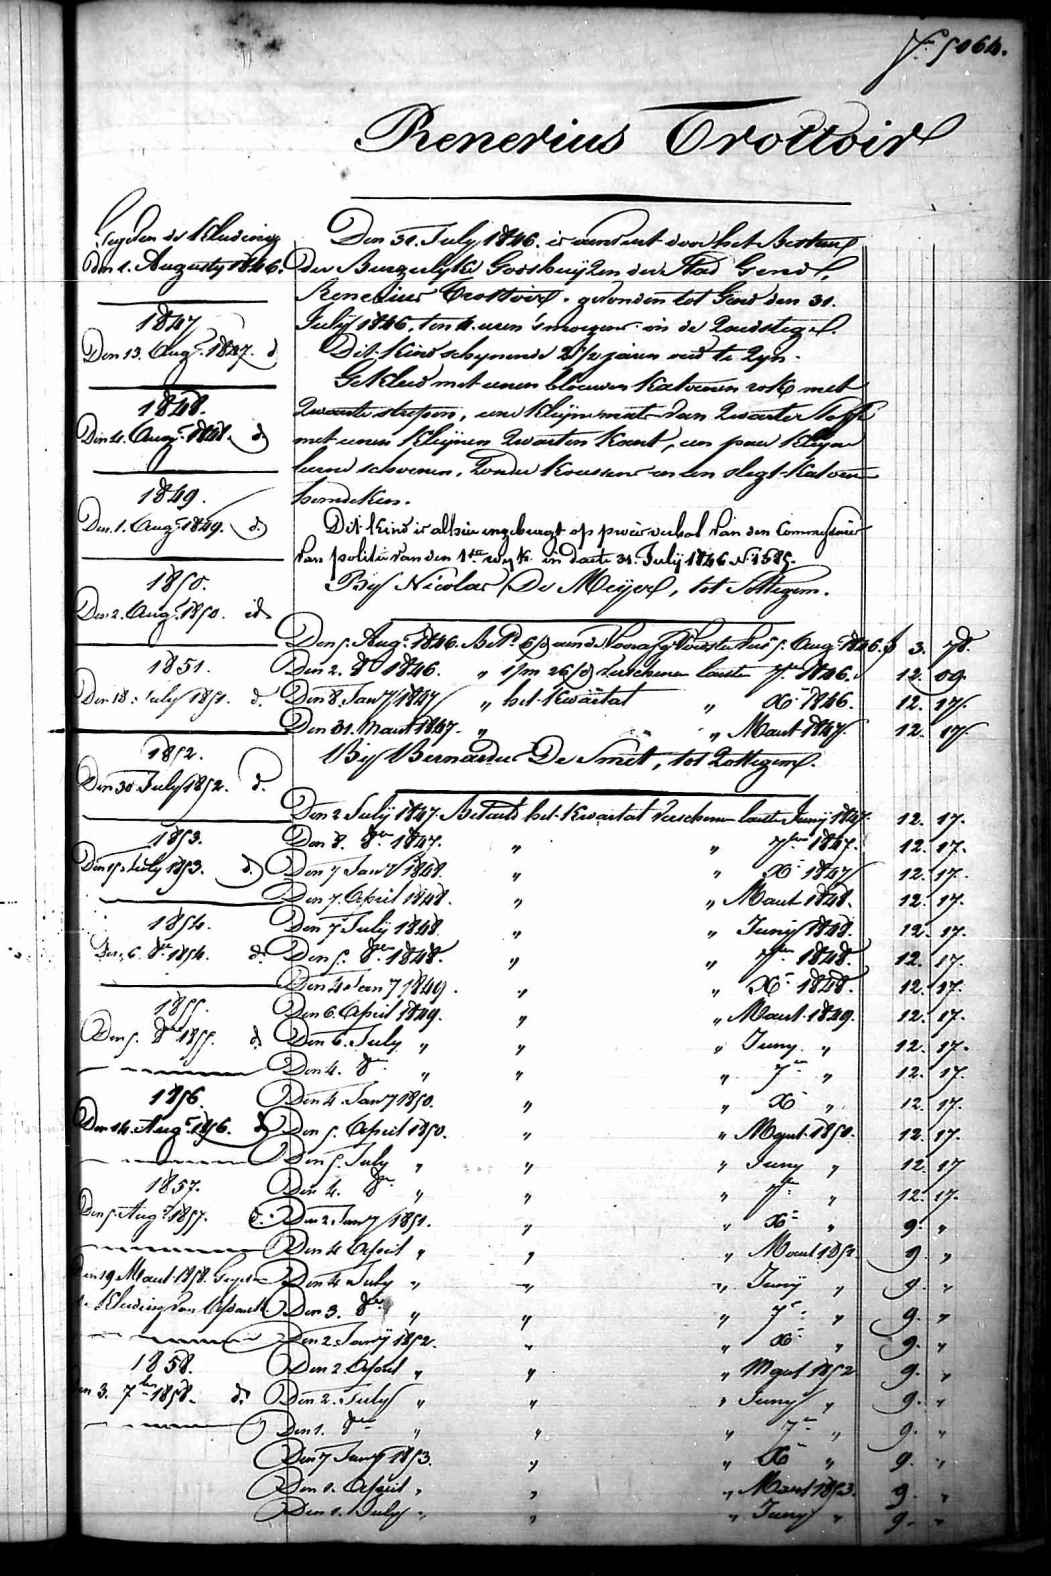 Nº 5064.
Renerius Trottoir
Gegeven de Kleeding
den 1. Augusty 1846.
1847
Den 13. Augt. 1847. d
1848.
Den 4. Augt. 1848. d
1849.
Den 1. Augt. 1849. d
1850.
Den 2. Augt. 1850. id
1851.
Den 18. July 1851. d.
1852.
Den 30 July 1852. d.
1853.
Den 15. July 1853. d.
1854.
Den 6. 8re 1854. d.
1855.
Den 5. 8re 1855. d.
1856.
Den 14. Augt. 1856. d
1857.
Den 5. Augt. 1857. d.
Den 19 Maart 1858. Gegeven
de Kleeding van
1858.
den 3. 7ber 1858. d.
Den 31. July 1846. is aanveert door het Bestuur
der Burgerlyke Godshuyzen der Stad Gend,
Renerius Trottoir. gevonden tot Gend den 31.
July 1846. ten 4. uren 's morgens in de Zandsteeg.
Dit kind schynende 2 1/2 jaren oud te zyn.
Gekleed met eenen blauwen katoenen rok met
zwarte streepen, eene kleyne muts van zwarte stoffe
met eenen kleynen zwarten kant, een paer kleyne
leere schoenen, zonder koussen en een slegt katoen
hemdeken.
Dit kind is alhier ingebragt op proces verbael van den Commissaris
van politie van den 1ste wyk in daete 31. July 1846 Nº 1585.
By Nicolas De Meyer, tot Sottegem.
Den 5. Augt. 1846. Bet. 5. Augt. 1846. f 3. 78.
Den 2. 8re 1846. " 1/m 26/d verschenen laeste 7re 1846. 12. 09.
Den 8. Jany 1847 " het Kwartael " Xre 1846. 12. 17.
Den 31. Maart 1847. " " " Maart 1847. 12. 17.
By Bernardus De Smet, tot Zottegem.
Den 2 July 1847. Betaeld het Kwartael verschenen laeste Juny 1847. 12. 17.
Den 8. 8re 1847. " " 7bre 1847. 12. 17.
Den 7 Jany 1848. " " Xre 1847 12. 17.
Den 7. April 1848. " " Maart 1848. 12. 17.
Den 7 July 1848. " " Juny 1848. 12. 17.
Den 5. 8re 1848. " " 7bre 1848. 12. 17.
Den 4 Jany 1849. " " Xre 1848. 12. 17.
Den 6. April 1849. " " Maart 1849. 12. 17.
Den 6. July " " " Juny " 12. 17.
Den 4. 8re " " " 7re " 12. 17.
Den 4. Jany 1850. " " Xre " 12. 17.
Den 5. April 1850. " " Maart 1850. 12. 17.
Den 5. July " " " Juny " 12. 17
Den 4. 8re " " " 7re " 12. 17.
Den 2 Jany 1851. " " Xre " 9. "
Den 4 April " " " Maart 1851. 9. "
Den 4 July " " " Juny " 9. "
Den 3. 8re " " " 7re " 9. "
Den 2 Jany 1852. " " Xre " 9. "
Den 2. April " " " Maart 1852 9. "
Den 2. July " " " Juny " 9. "
Den 1. 8re " " " 7re " 9. "
Den 7 Jany 1853. " " Xre " 9. "
Den 1. April " " " Maart 1853. 9. "
Den 1. July " " " Juny " 9. "